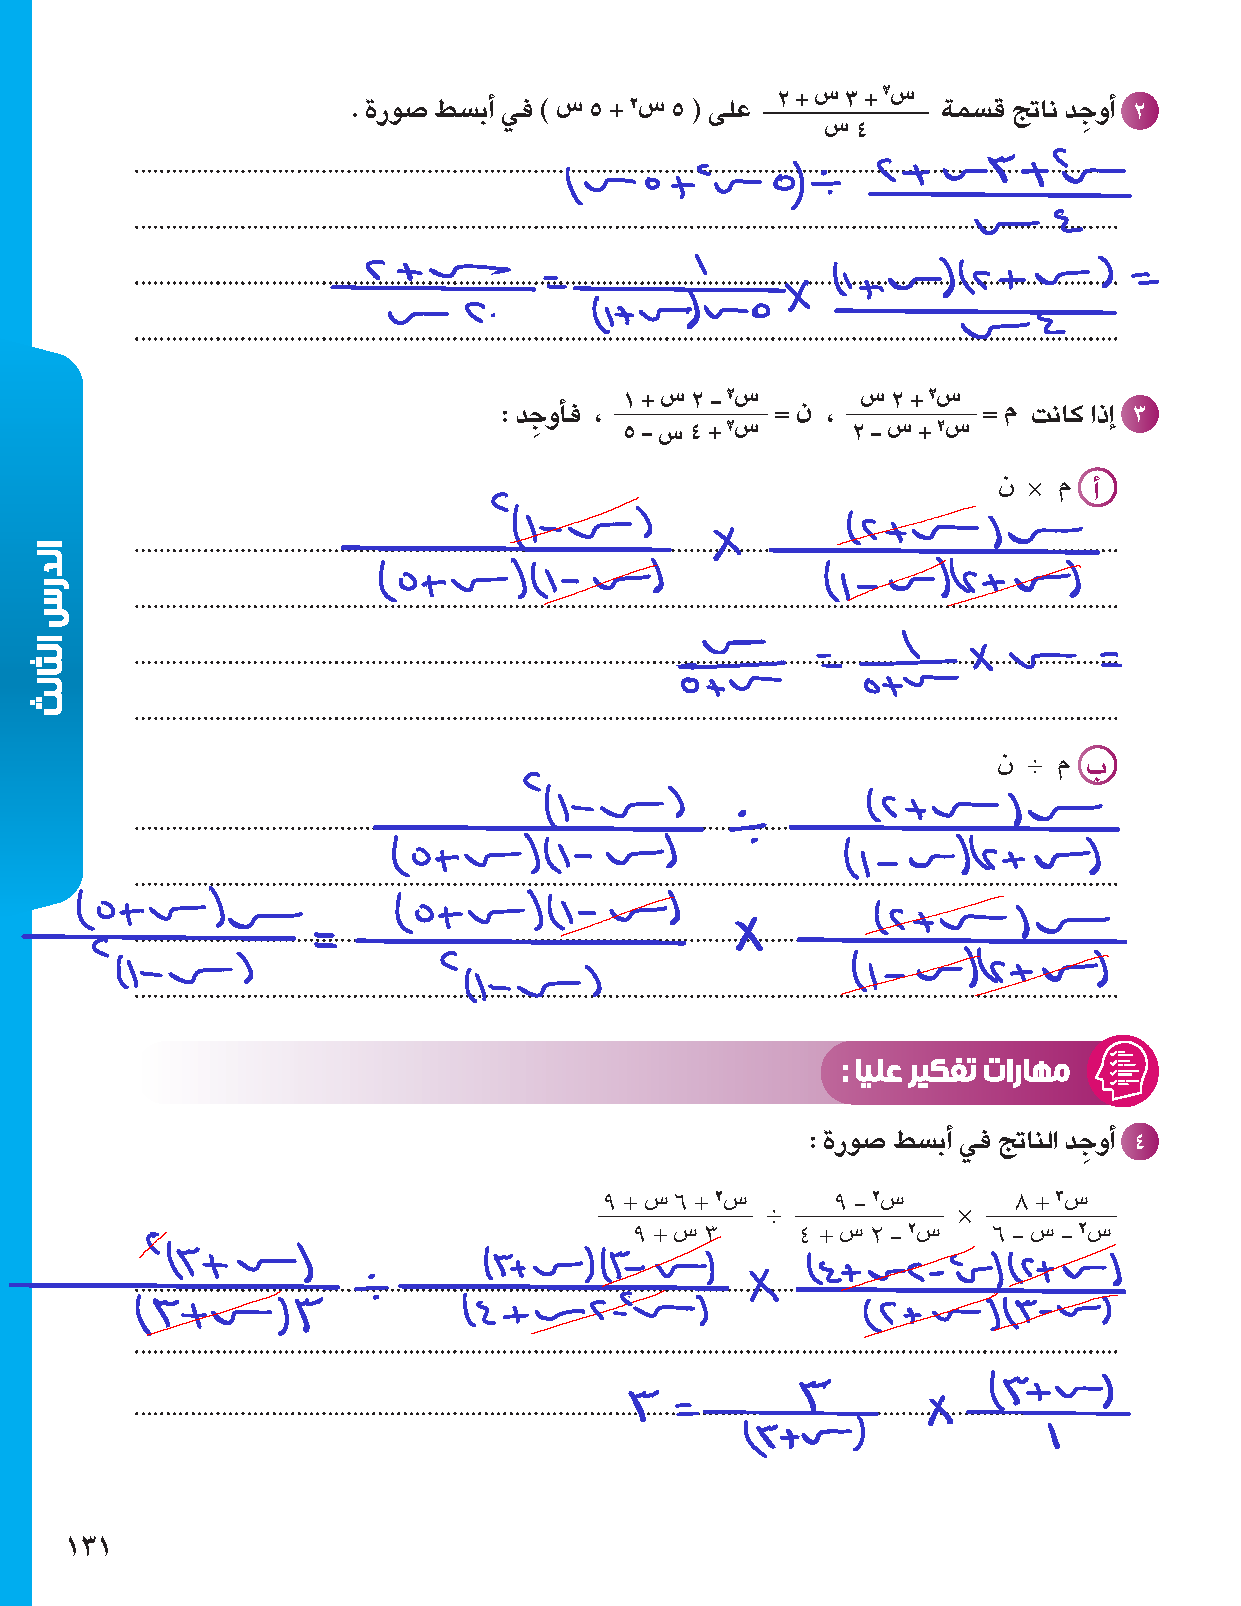 ٢ أوجِد ناتج قسمة (س٢ + ٣ س + ٢) / (٤ س) على ( ٥ س٢ + ٥ س ) في أبسط صورة .
(س٢ + ٣س + ٢) / (٤س) ÷ (٥س٢ + ٥س)
= (س + ٢)(س + ١) / (٤س) × ١ / (٥س(س + ١)) = (س + ٢) / (٢٠س)
٣ إذا كانت م = (س٢ + ٢ س) / (س٢ + س − ٢) ، ن = (س٢ − ٢ س + ١) / (س٢ + ٤ س − ٥) ، فأوجِد :
أ م × ن
س(س + ٢) / (س + ٢)(س − ١) × (س − ١)٢ / (س − ١)(س + ٥)
= س × ١ / (س + ٥) = س / (س + ٥)
ب م ÷ ن
س(س + ٢) / (س + ٢)(س − ١) ÷ (س − ١)٢ / (س − ١)(س + ٥)
س(س + ٢) / (س + ٢)(س − ١) × (س − ١)(س + ٥) / (س − ١)٢ = س(س + ٥) / (س − ١)٢
مهارات تفكير عليا :
٤ أوجِد الناتج في أبسط صورة :
(س٣ + ٨) / (س٢ − س − ٦) × (س٢ − ٩) / (س٢ − ٢ س + ٤) ÷ (س٢ + ٦ س + ٩) / (٣ س + ٩)
(س + ٢)(س٢ − ٢س + ٤) / (س − ٣)(س + ٢) × (س − ٣)(س + ٣) / (س٢ − ٢س + ٤) ÷ (س + ٣)٢ / ٣(س + ٣)
(س + ٣) / ١ × ٣ / (س + ٣) = ٣
الدرس الثالث
١٣١